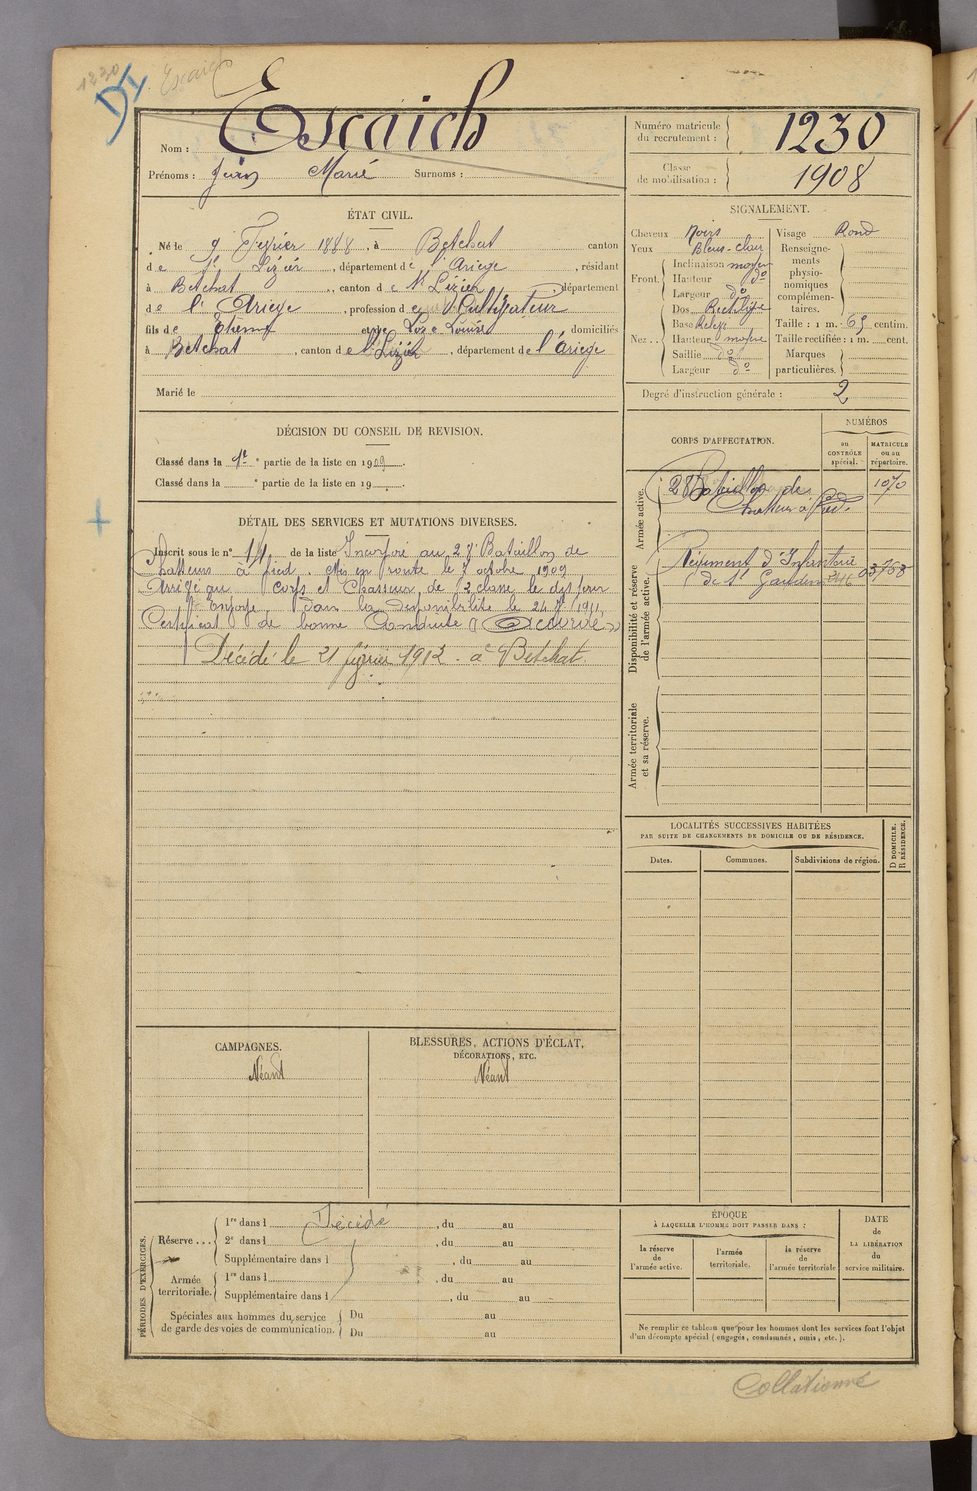 1230
Escaich
Nom : Escaich
Prénoms : Jean Marie Surnoms :
Numéro matricule du recrutement : 1230
Classe de mobilisation : 1908
ÉTAT CIVIL.
Né le 9 Février 1888, à Betchat canton
de St Lizier, département de l'Ariège, résidant
à Betchat, canton de St Lizier, département
de l'Ariège, profession de Cultivateur
fils de Etienne et de Loze Louise domiciliés
à Betchat, canton de St Lizier, département de l'Ariège
Marié le
SIGNALEMENT.
Cheveux Noirs
Yeux Bleus-clair
Front. Inclinaison moyen
Hauteur do
Largeur do
Nez .. Dos Rectiligne
Base Relevé
Hauteur moyenne
Saillie do
Largeur do
Visage Rond
Renseigne-
ments
physio-
nomiques
complémen-
taires.
Taille : 1 m. 65 centim.
Taille rectifiée : 1 m. cent.
Marques
particulières.
Degré d'instruction générale : 2
DÉCISION DU CONSEIL DE REVISION.
Classé dans la 1re partie de la liste en 1909.
Classé dans la e partie de la liste en 19
DÉTAIL DES SERVICES ET MUTATIONS DIVERSES.
Inscrit sous le n° 14 de la liste Incorporé au 28e Bataillon de
Chasseurs à pied. Mis en route le 7 octobre 1909
Arrivé au corps et Chasseur de 2e classe le des jour
dans la disponibilité le 24 1911.
Certificat de bonne Conduite (Accordé)
Décédé le 21 février 1912 à Betchat.
CORPS D'AFFECTATION.
NUMÉROS
au CONTRÔLE spécial.
MATRICULE ou au répertoire.
Armée active.
28 Bataillon de
Chasseurs à Pied.
1070
Disponibilité et réserve de l'armée active.
Régiment d'Infanterie
de St Gaudens
03768
Armée territoriale et sa réserve.
LOCALITÉS SUCCESSIVES HABITÉES
PAR SUITE DE CHANGEMENTS DE DOMICILE OU DE RÉSIDENCE.
D DOMICILE.
R RÉSIDENCE.
Dates.
Communes.
Subdivisions de région.
CAMPAGNES.
Néant
BLESSURES, ACTIONS D'ÉCLAT,
DÉCORATIONS, ETC.
Néant
PÉRIODES D'EXERCICES.
Réserve ... 1re dans l Décédé, du au
2e dans l , du au
Supplémentaire dans l , du au
Armée territoriale. 1re dans l , du au
Supplémentaire dans l , du au
Spéciales aux hommes du service Du au
de garde des voies de communication. Du au
ÉPOQUE
À LAQUELLE L'HOMME DOIT PASSER DANS :
la réserve de l'armée active.
l'armée territoriale.
la réserve de l'armée territoriale
DATE de LA LIBÉRATION du service militaire.
Ne remplir ce tableau que pour les hommes dont les services font l'objet
d'un décompte spécial (engagés, condamnés, omis, etc.).
Collationné